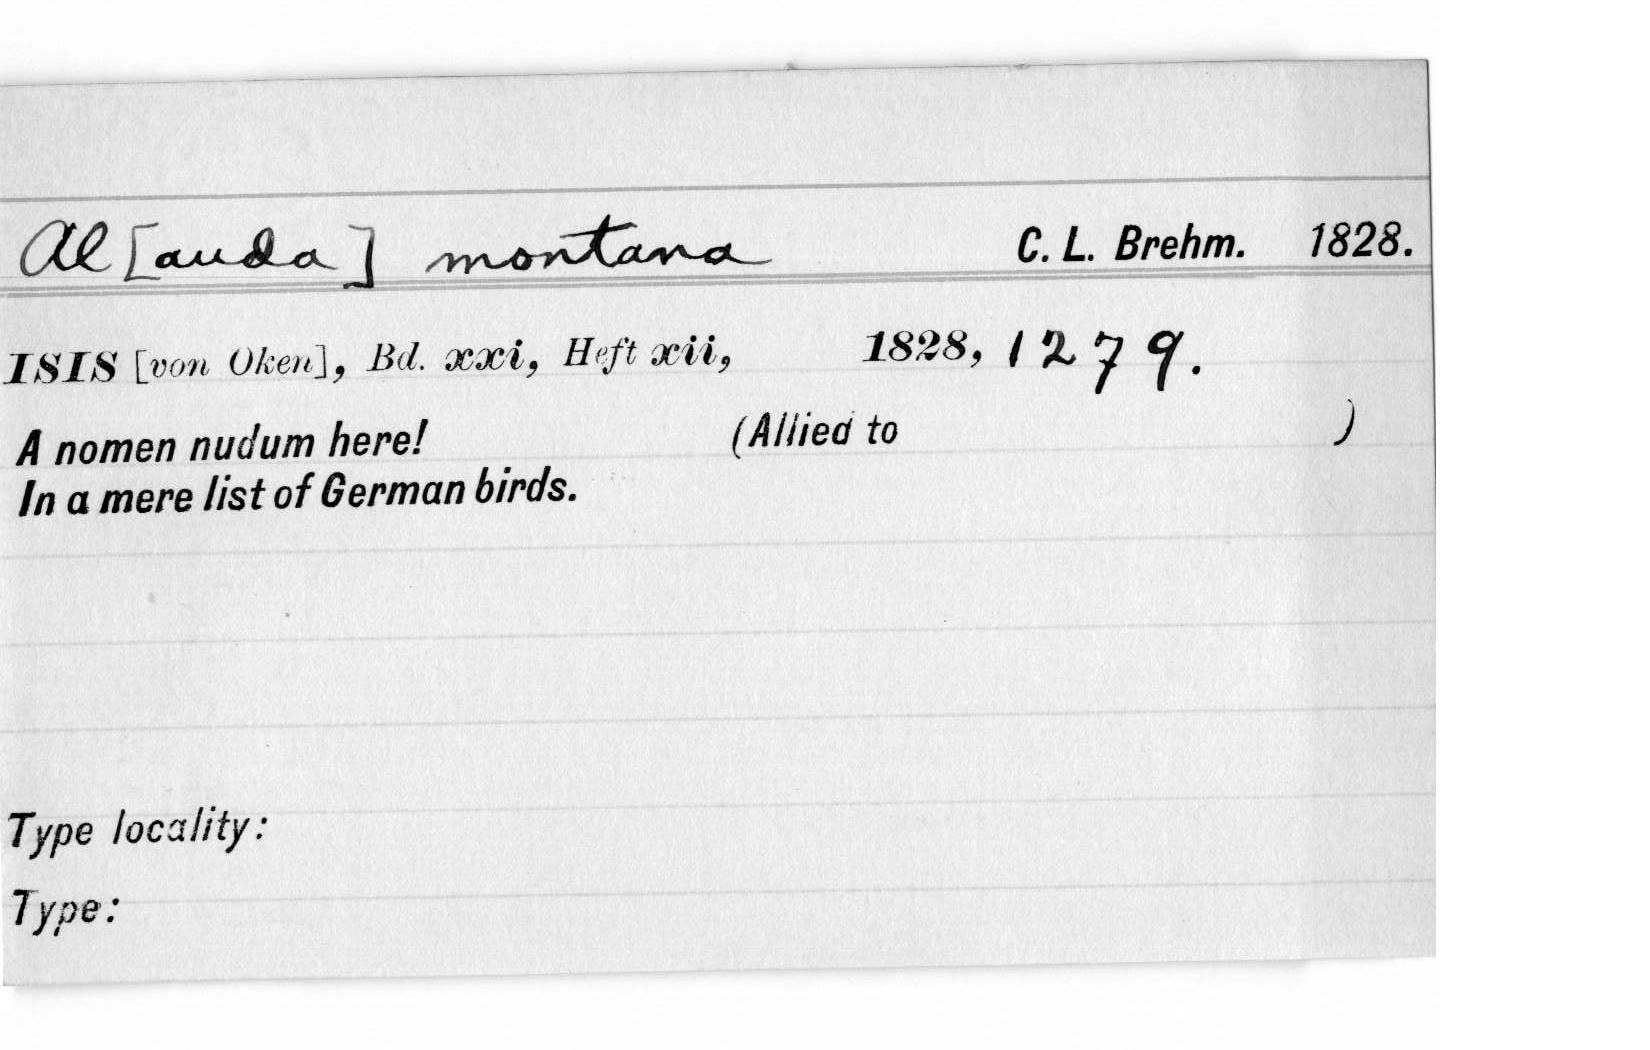 Al[auda] montana C. L. Brehm. 1828.
ISIS [von Oken], Bd. xxi, Heft xii, 1828, 1279.
A nomen nudum here! (Allied to )
In a mere list of German birds.
Type locality:
Type: